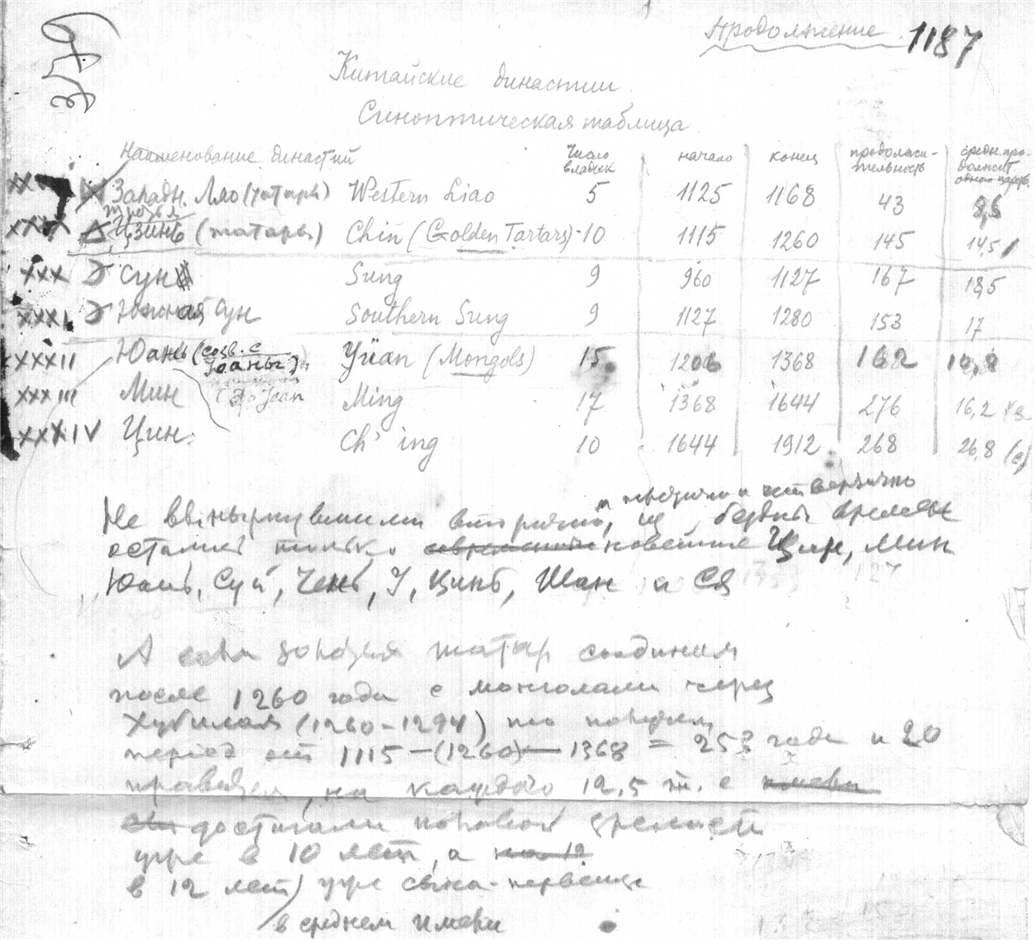 Продолжение 1187
379
Китайские династии
Синоптическая таблица
Наименование династий Число владык начало конец продолжительность средн. продолжит. одного царств.
Западн. Ляо (татары) Western Liao 5 1125 1168 43 8,5
Цзинь (татары) Chin (Golden Tartars) 10 1115 1260 145 14,5
XXX Сун Sung 9 960 1127 167 18,5
XXXI Южная Сун Southern Sung 9 1127 1280 153 17
XXXII Юань (созв. с Iоаны) Yüan (Mongols) 15 1206 1368 162
XXXIII Мин Ming 17 1368 1644 276 16,2
XXXIV Цин. Ch'ing 10 1644 1912 268 26,8
Не вынырнувшими вторично, из бездны времен
остались только новейшие Цин, Мин
Юань, Суй, Чень, У, Цинь, Шан и Ся
А если татар соединим
после 1260 года с монголами через
Хубилая (1260-1294) то получим
период от 1115 — (1260) — 1368 = 253 года и 20
на каждого 12,5 т. е
достигали половой зрелости
уже в 10 лет, а
в 12 лет) уже сына-первенца
в среднем имели